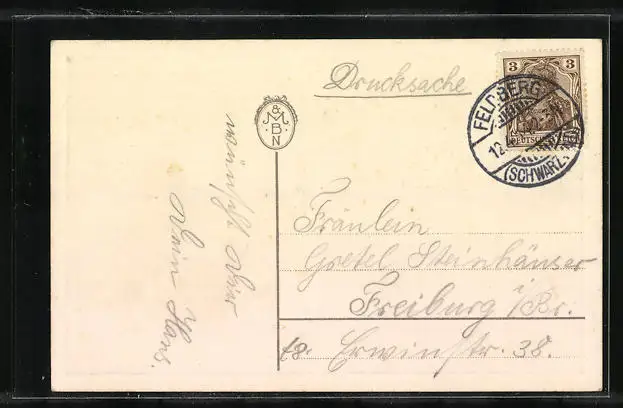 Drucksache
3 3
DEUTSCHES REICH
FELDBERG
12.
(SCHWARZ
M & B N
wünscht Dir
Dein Hans.
Fräulein
Gretel Steinhäuser
Freiburg i/Br.
78. Erwinstr. 38.